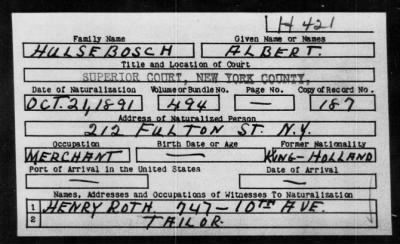 H 421
Family Name Given Name or Names
HULSEBOSCH ALBERT.
Title and Location of Court
SUPERIOR COURT, NEW YORK COUNTY.
Date of Naturalization Volume or Bundle No. Page No. Copy of Record No.
OCT. 21, 1891 494 — 187
Address of Naturalized Person
212 FULTON ST. N.Y.
Occupation Birth Date or Age Former Nationality
MERCHANT — KING-HOLLAND
Port of Arrival in the United States Date of Arrival
— —
Names, Addresses and Occupations of Witnesses To Naturalization
1 HENRY ROTH 747-10TH AVE.
2 TAILOR.